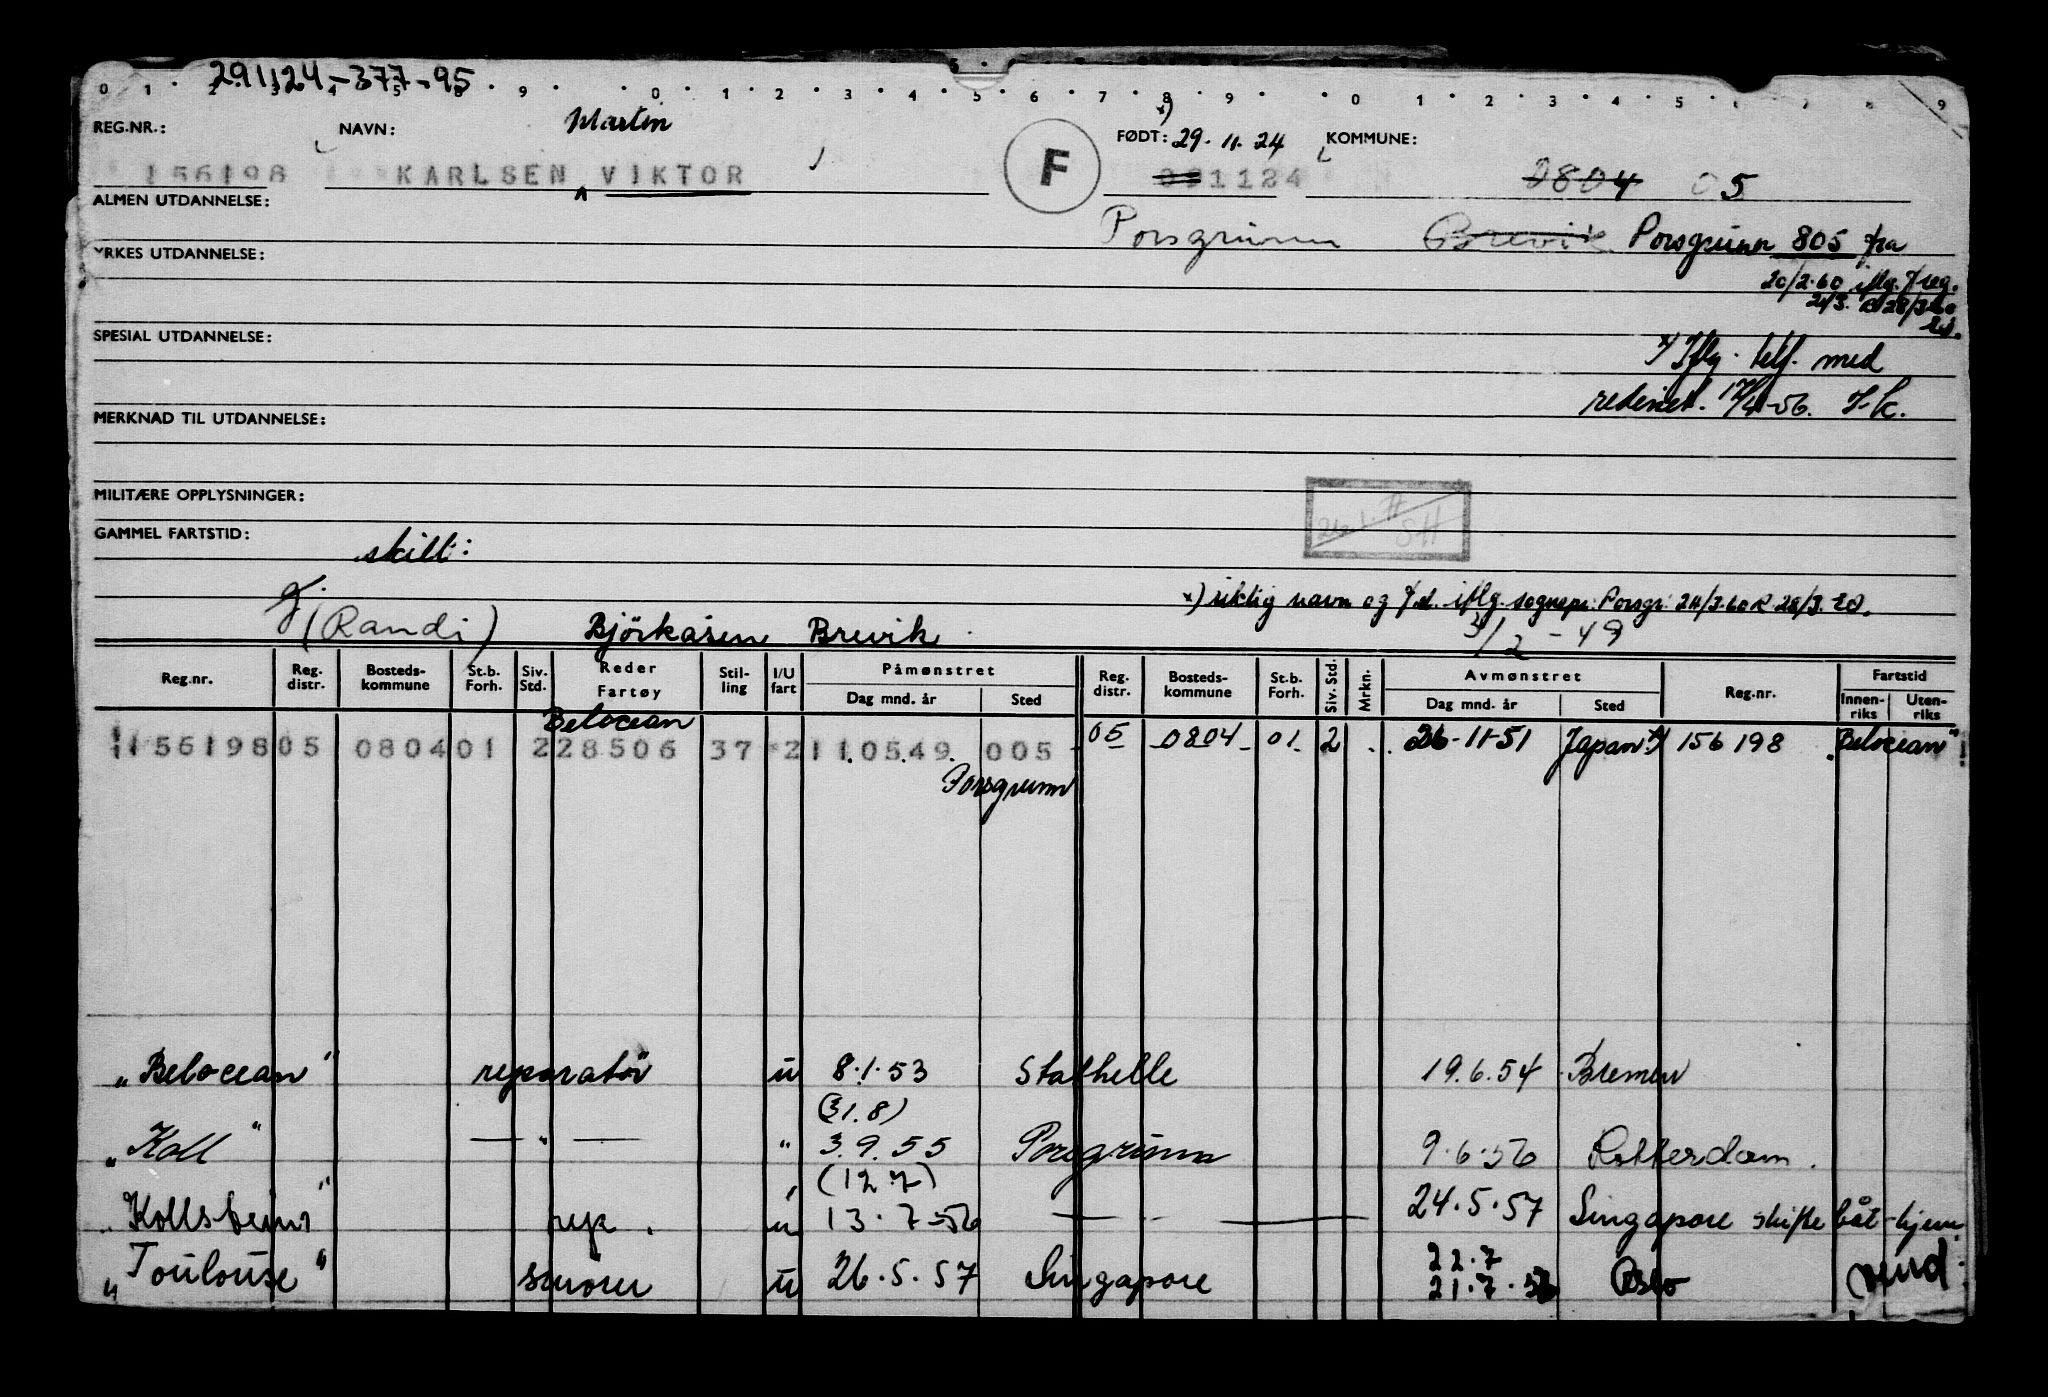 291124-377-95
0 1 2 3 4 5 8 9 0 1 2 3 4 5 6 7 8 9 0 1 2 3 4 5 6 7 8 9
REG.NR.: NAVN: Martin F FØDT: x) 29.11.24 KOMMUNE:
156198 KARLSEN VIKTOR 1124 0804 05
ALMEN UTDANNELSE:
Porsgrunn Brevik Porsgrunn 805 fra
YRKES UTDANNELSE:
20/2.60 iflg. f/reg.
24/3. R 28/3-60
Ed.
SPESIAL UTDANNELSE:
x) Iflg. telf. med
rederiet. 17/4-56. J-k.
MERKNAD TIL UTDANNELSE:
MILITÆRE OPPLYSNINGER:
SH
GAMMEL FARTSTID:
skilt:
x) riktig navn og f.d. iflg. sognepr. Porsgr. 24/3.60 R 28/3. Ed.
(Randi) Björkåsen Brevik. 3/2-49
Reg.nr. Reg. distr. Bosteds- kommune St.b. Forh. Siv. Std. Reder Fartøy Stil- ling I/U fart Påmønstret Dag mnd. år Sted Reg. distr. Bosteds- kommune St.b. Forh. Siv. Std. Mrkn. Avmønstret Dag mnd. år Sted Reg.nr. Fartstid Innen- riks Uten- riks
Belocean
15619805 080401 228506 37 2 110549 005 05 0804 01 2 26-11-51 Japan 156198 "Belocean"
Porsgrunn
"Belocean" reparatør u 8.1.53 Stathelle 19.6.54 Bremen
(31.8)
"Koll" — " — " 3.9.55 Porsgrunn 9.6.56 Rotterdam.
(12.7)
"Kollsbeinr" rep. u 13.7-56 — " — 24.5.57 Singapore skifte båt-hjem
"Toulouse" smører u 26.5.57 Singapore 22.7
21.7.57 Oslo (vend